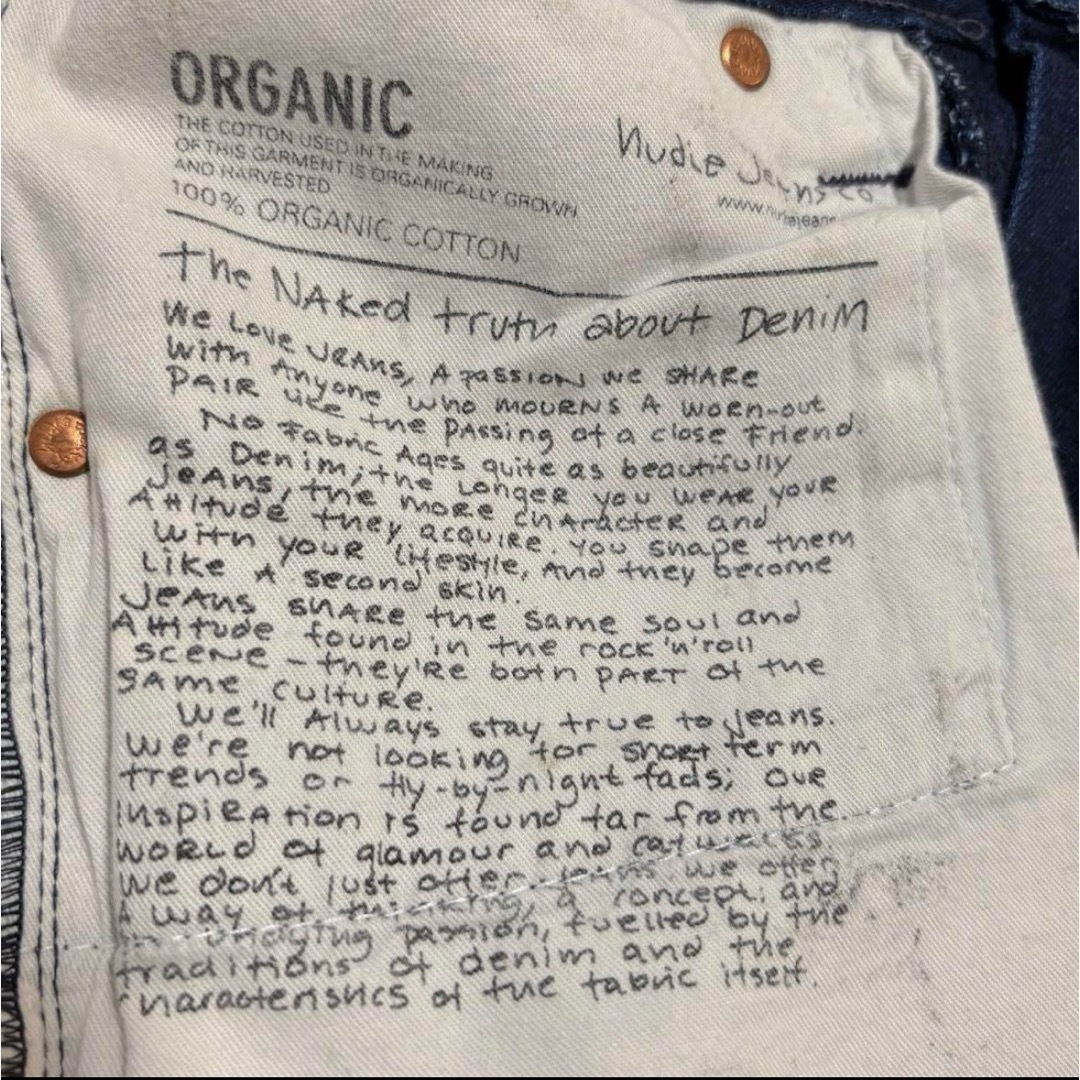 ORGANIC
THE COTTON USED IN THE MAKING
OF THIS GARMENT IS ORGANICALLY GROWN
AND HARVESTED
100% ORGANIC COTTON
Nudie Jeans co
www.nudiejeans
The NAKed truth about Denim
We Love JEANS, A PASSION WE SHARE
With Anyone who MOURNS A WORN-OUT
PAIR LIKE the PASSing of a close Friend.
No Fabric Ages quite as beautifully
as Denim; the LONGER you WEAR YOUR
JEANS, the MORE CHARACTER and
Attitude they acquire. You shape them
With YOUR lifestyle, And they become
Like A second skin.
JEANS SHARE the same soul and
Attitude found in the rock'n'roll
SCENE - they'RE both PART of the
SAME CULTURE.
We'll Always stay true to Jeans.
We're not looking for short term
trends or fly-by-night fads; OUR
INSPIRAtion is found far from the
WORLD of glamour and catwalks.
We don't just offer jeans. We offer
A way of thinking, a concept, and
undying passion, fuelled by the
traditions of denim and the
characteristics of the fabric itself.